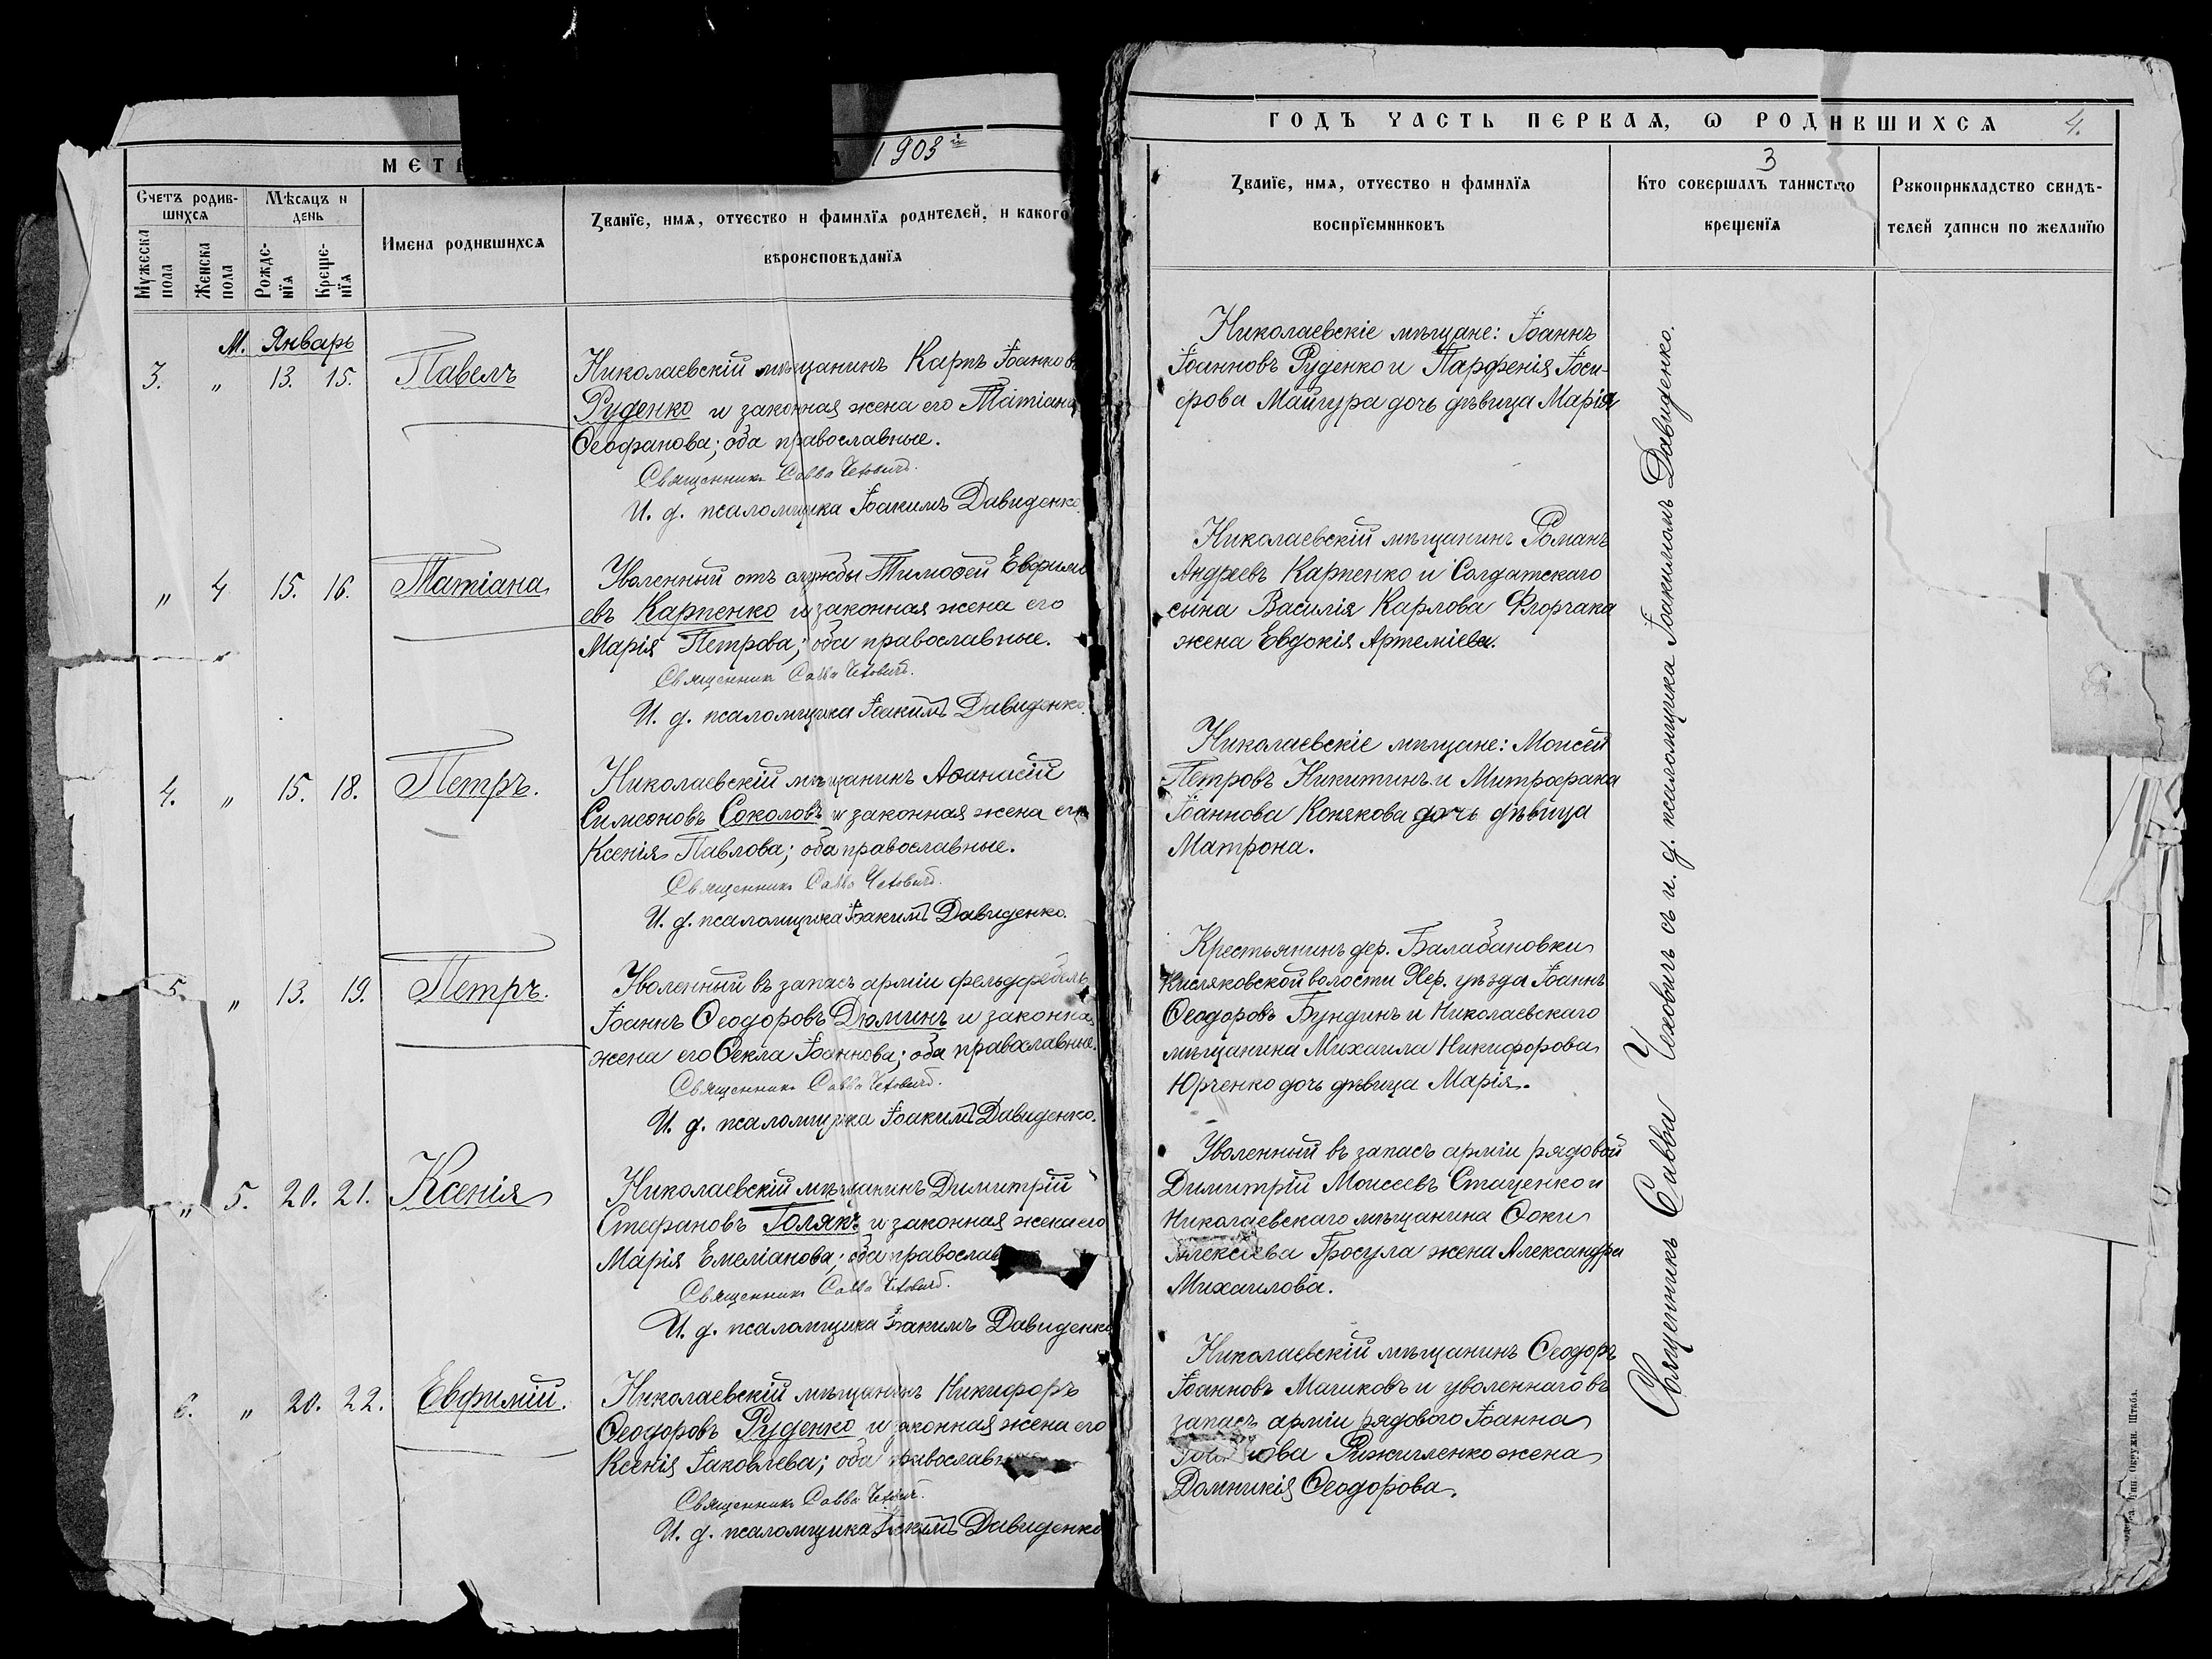 1903й
МЕТ
Счетъ родив-
шихся
Мѣсяцъ и
день
Мужеска
пола
Женска
пола
Рожде-
нїя
Креще-
нїя
Имена родившихся
Званїе, имя, отчество и фамилїя родителей, и какого
вѣроисповѣданїя
М. Январь
3. „ 13. 15. Павелъ
Николаевскій мѣщанинъ Карпъ Іоанновъ
Руденко и законная жена его Татіана
Ѳеофанова; оба православные.
Священникъ Савва Чехович
И. д. псаломщика Іоакимъ Давиденко.
„ 4 15. 16. Татіана
Уволенный отъ службы Тимоѳей Евфими
евъ Карпенко и законная жена его
Марія Петрова; оба православные.
Священник Савва Чехович.
И. д. псаломщика Іоакимъ Давиденко.
4. „ 15. 18. Петръ.
Николаевскій мѣщанинъ Аѳанасій
Симеоновъ Соколовъ и законная жена его
Ксенія Павлова; оба православные.
Священникъ Савва Чехович.
И. д. псаломщика Іоакимъ Давиденко.
5. „ 13. 19. Петръ.
Уволенный въ запасъ арміи фельдфебель
Іоаннъ Ѳеодоровъ Дюминъ и законная
жена его Ѳекла Іоаннова; оба православные.
Священникъ Савва Чехович.
И. д. псаломщика Іоакимъ Давиденко.
„ 5. 20. 21. Ксенія
Николаевскій мѣщанинъ Димитрій
Стефановъ Голякъ и законная жена его
Марія Емеліанова; оба православ
Священникъ Савва Чехович.
И. д. псаломщика Іоакимъ Давиденко
6. „ 20. 22. Евфимій.
Николаевскій мѣщанинъ Никифоръ
Ѳеодоровъ Руденко и законная жена его
Ксенія Іаковлева; оба православн
Священникъ Савва Чехович.
И. д. псаломщика Іоакимъ Давиденко
ГОДЪ ЧАСТЬ ПЕРВАЯ, Ѡ РОДИВШИХСЯ
4.
3
Званїе, имя, отчество и фамилїя
воспрїемниковъ
Кто совершалъ таинство
крещенїя
Рукоприкладство свидѣ-
телей записи по желанїю
Николаевскіе мѣщане: Іоаннъ
Іоанновъ Руденко и Парфенія Іоси-
фова Майгура дочь дѣвица Марія
Николаевскій мѣщанинъ Романъ
Андреевъ Карпенко и Солдатскаго
сына Василія Карлова Флорчака
жена Евдокія Артеміева.
Николаевскіе мѣщане: Моисей
Петровъ Никитинъ и Митрофана
Іоаннова Конякова дочь дѣвица
Матрона.
Крестьянинъ дер. Балабановки
Кисляковской волости Хер. уѣзда Іоаннъ
Ѳеодоровъ Бундинъ и Николаевскаго
мѣщанина Михаила Никифорова
Юрченко дочь дѣвица Марія.
Уволенный въ запасъ арміи рядовой
Димитрій Моисеевъ Стаценко и
Николаевскаго мѣщанина Ѳоки
Алексіева Гросула жена Александра
Михаилова.
Николаевскій мѣщанинъ Ѳеодоръ
Іоанновъ Машковъ и уволеннаго въ
запасъ арміи рядового Іоанна
жена
Домникія Ѳеодорова.
Священникъ Савва Чеховичъ съ и. д. псаломщика Іоакимомъ Давиденко.
Окружн. Штаба.